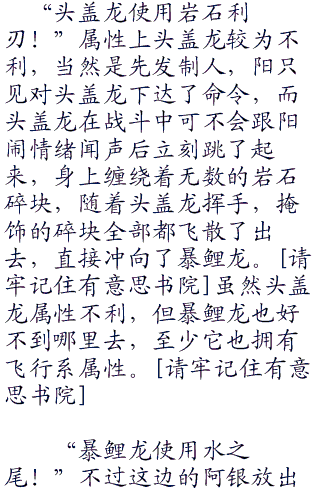 “头盖龙使用岩石利
刃！”属性上头盖龙较为不
利，当然是先发制人，阳只
见对头盖龙下达了命令，而
头盖龙在战斗中可不会跟阳
闹情绪闻声后立刻跳了起
来，身上缠绕着无数的岩石
碎块，随着头盖龙挥手，掩
饰的碎块全部都飞散了出
去，直接冲向了暴鲤龙。[请
牢记住有意思书院]虽然头盖
龙属性不利，但暴鲤龙也好
不到哪里去，至少它也拥有
飞行系属性。[请牢记住有意
思书院]
“暴鲤龙使用水之
尾！”不过这边的阿银放出